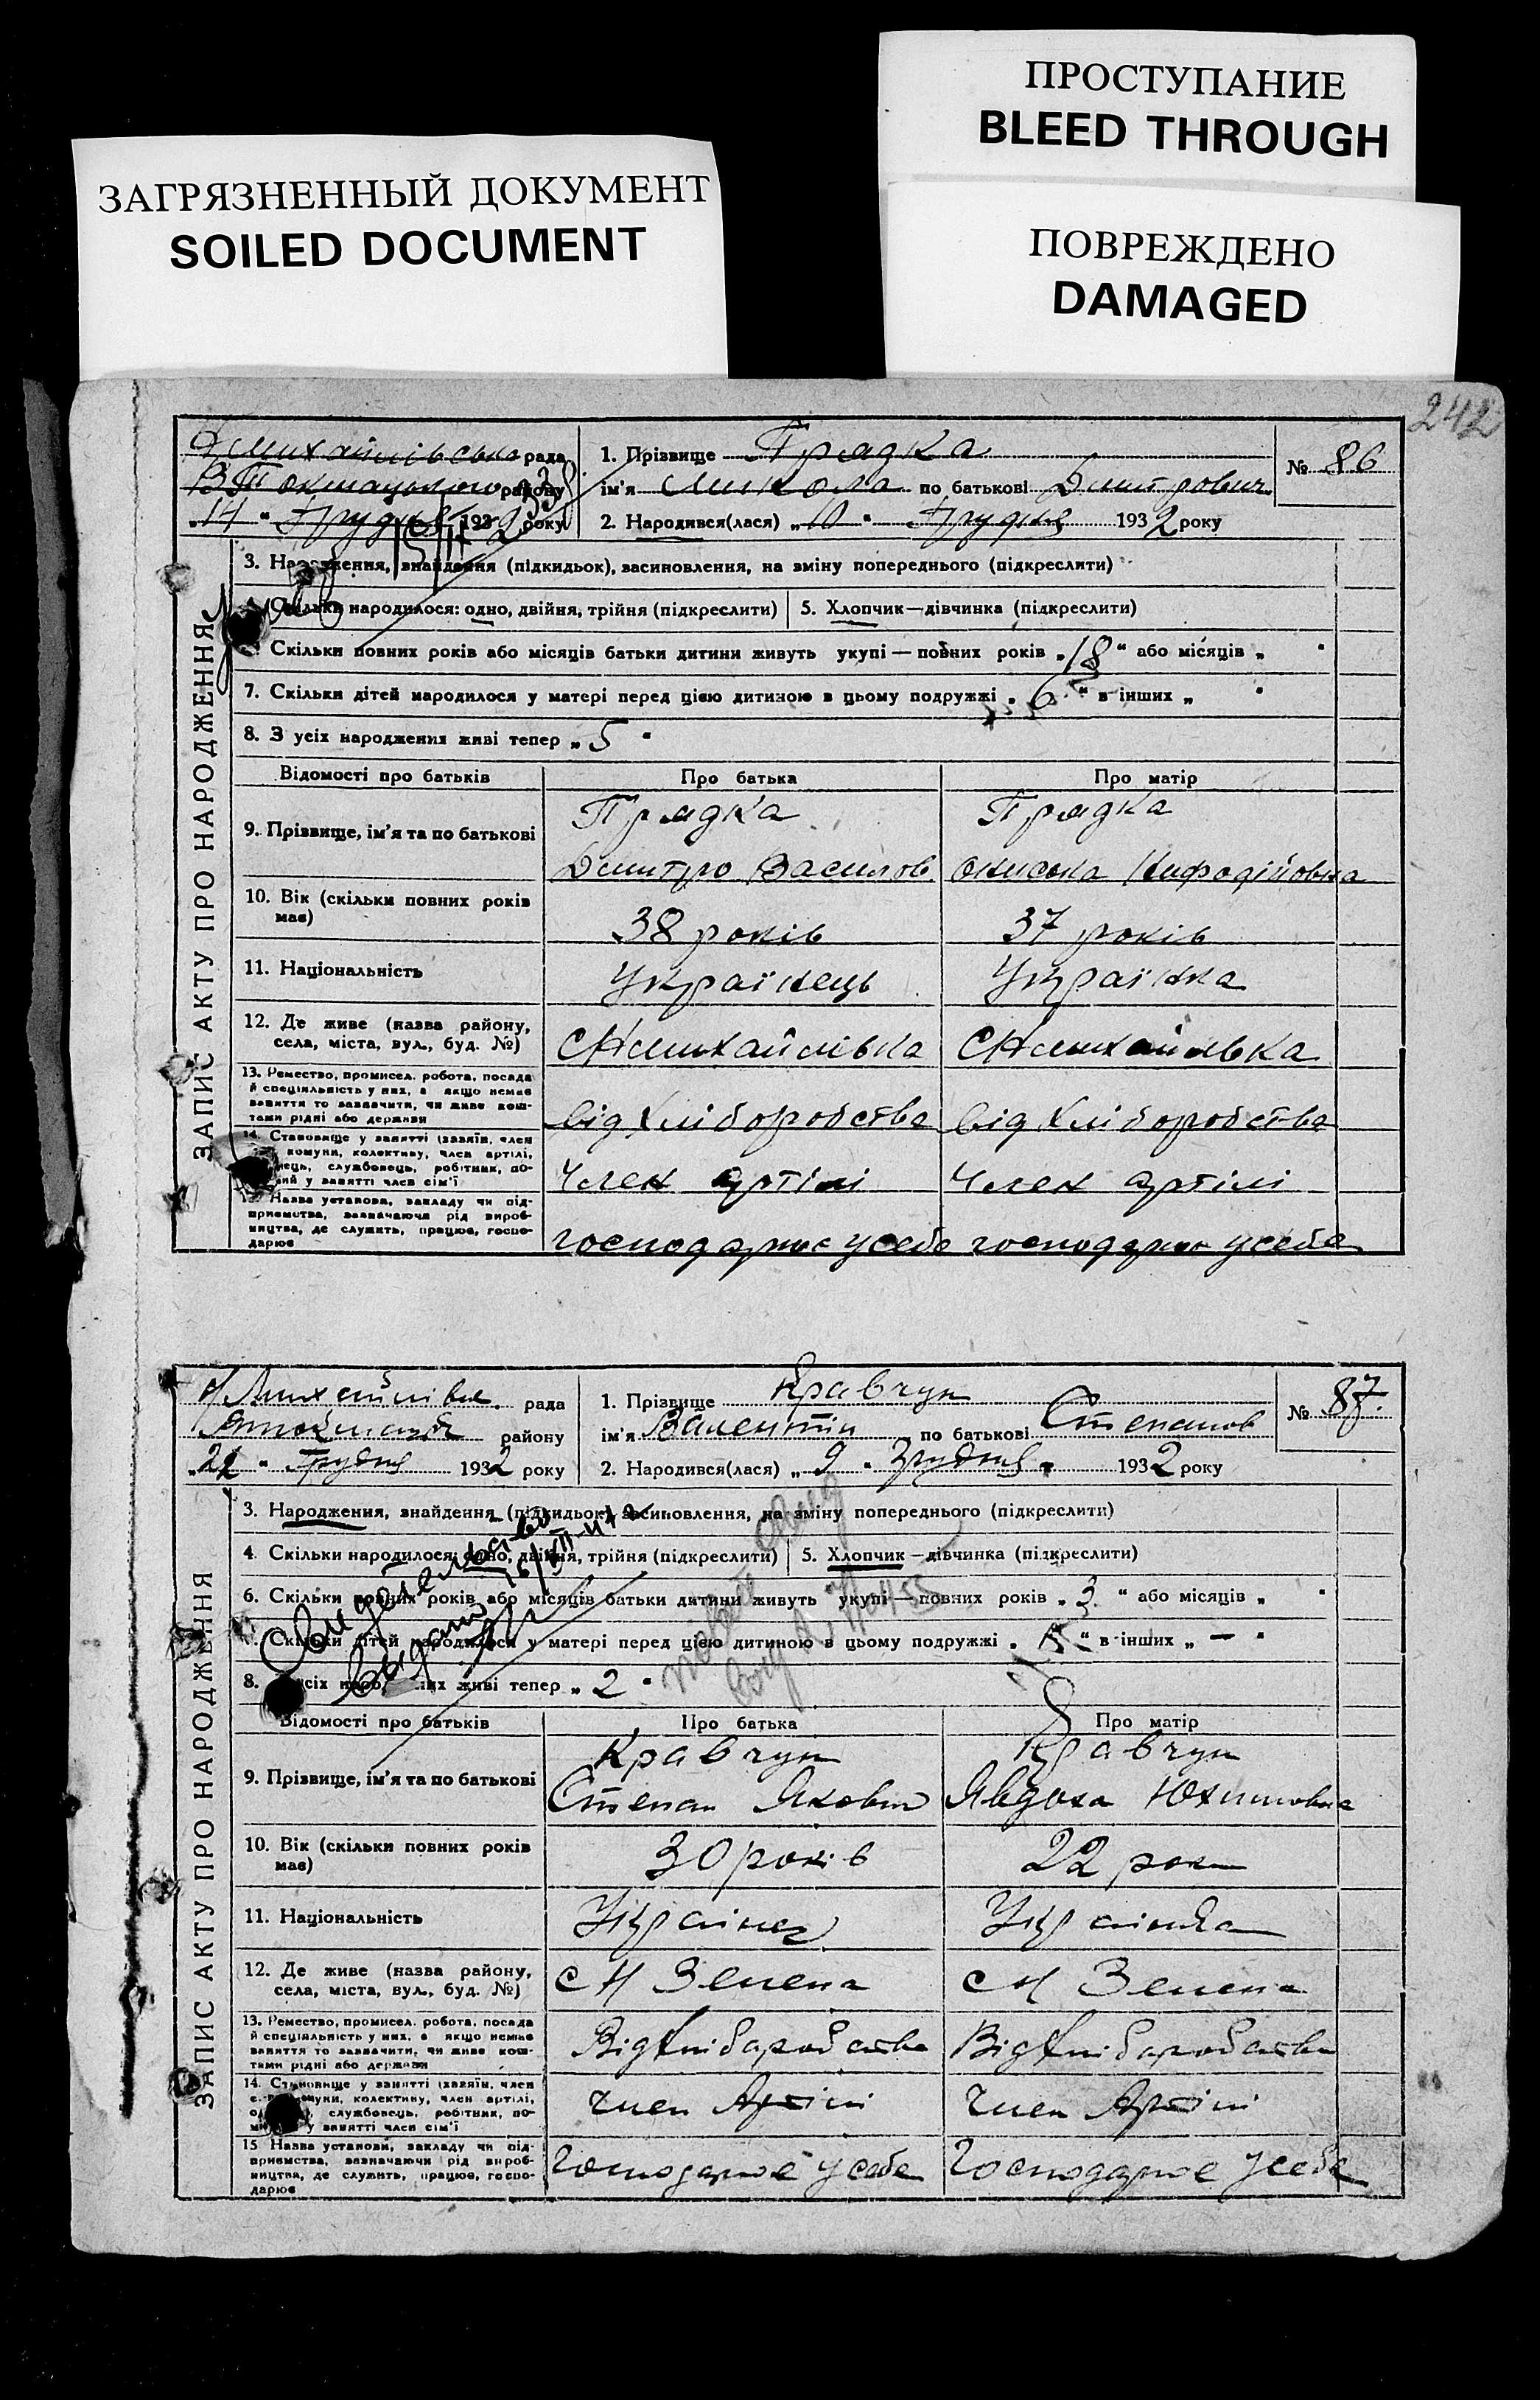 ПРОСТУПАНИЕ
BLEED THROUGH
ЗАГРЯЗНЕННЫЙ ДОКУМЕНТ
SOILED DOCUMENT
ПОВРЕЖДЕНО
DAMAGED
242
рада
району
14 Грудня 1932 року
1. Прізвище Прядка
№ 86
ім'я Микола по батькові Дмитрович
2. Народився(лася) „10" Грудня 1932 року
ЗАПИС АКТУ ПРО НАРОДЖЕННЯ
3. Народження, знайдення (підкидьок), засиновлення, на зміну попереднього (підкреслити)
народилося: одно, двійня, трійня (підкреслити)
5. Хлопчик—дівчинка (підкреслити)
Скільки повних років або місяців батьки дитини живуть укупі — повних років „18" або місяців „ "
7. Скільки дітей народилося у матері перед цією дитиною в цьому подружжі „6" в інших „ "
8. З усіх народжених живі тепер „5"
Відомості про батьків
Про батька
Про матір
9. Прізвище, ім'я та по батькові
Прядка
Дмитро Василов
Прядка
10. Вік (скільки повних років має)
38 років
37 років
11. Національність
Українець
Українка
12. Де живе (назва району, села, міста, вул., буд. №)
С Н Михайлівка
С Н Михайлівка
13. Ремество, промисел, робота, посада й спеціяльність у них, а якщо немає заняття то зазначити, чи живе коштами рідні або держави
від хліборобства
від хліборобства
14. Становище у занятті (хазяїн, член комуни, колективу, член артілі, службовець, робітник, у занятті член сім'ї
Член артілі
Член артілі
Назва установи, закладу чи підприємства, зазначаючи рід виробництва, де служить, працює, господарює
господарює усебе
господарює усебе
рада
району
1932 року
1. Прізвище Кравчун
№ 87.
ім'я Валентін по батькові Степанов
2. Народився(лася) „9" Грудня 1932 року
ЗАПИС АКТУ ПРО НАРОДЖЕННЯ
3. Народження, знайдення (підкидьок) засиновлення, на зміну попереднього (підкреслити)
4. Скільки народилося: одно, двійня, трійня (підкреслити)
5. Хлопчик—дівчинка (підкреслити)
6. Скільки повних років або місяців батьки дитини живуть укупі — повних років „3" або місяців „ "
Скільки дітей народилося у матері перед цією дитиною в цьому подружжі в інших „ — "
8. усіх живі тепер „2"
Свидетельство
выдано
Відомості про батьків
Про батька
Про матір
9. Прізвище, ім'я та по батькові
Кравчун
Степан Якович
Кравчун
Явдоха Юхимовна
10. Вік (скільки повних років має)
30 років
22 роки
11. Національність
Українец
Українка
12. Де живе (назва району, села, міста, вул., буд. №)
с Н Зелена
с Н Зелена
13. Ремество, промисел, робота, посада й спеціяльність у них, а якщо немає заняття то зазначити, чи живе коштами рідні або держави
Від хліборобства
Від хліборобства
14. Становище у занятті (хазяїн, член комуни, колективу, член артілі, службовець, робітник, у занятті член сім'ї
член Артілі
член Артілі
15 Назва установи, закладу чи підприємства, зазначаючи рід виробництва, де служить, працює, господарює
Господарює усебе
Господарює усебе